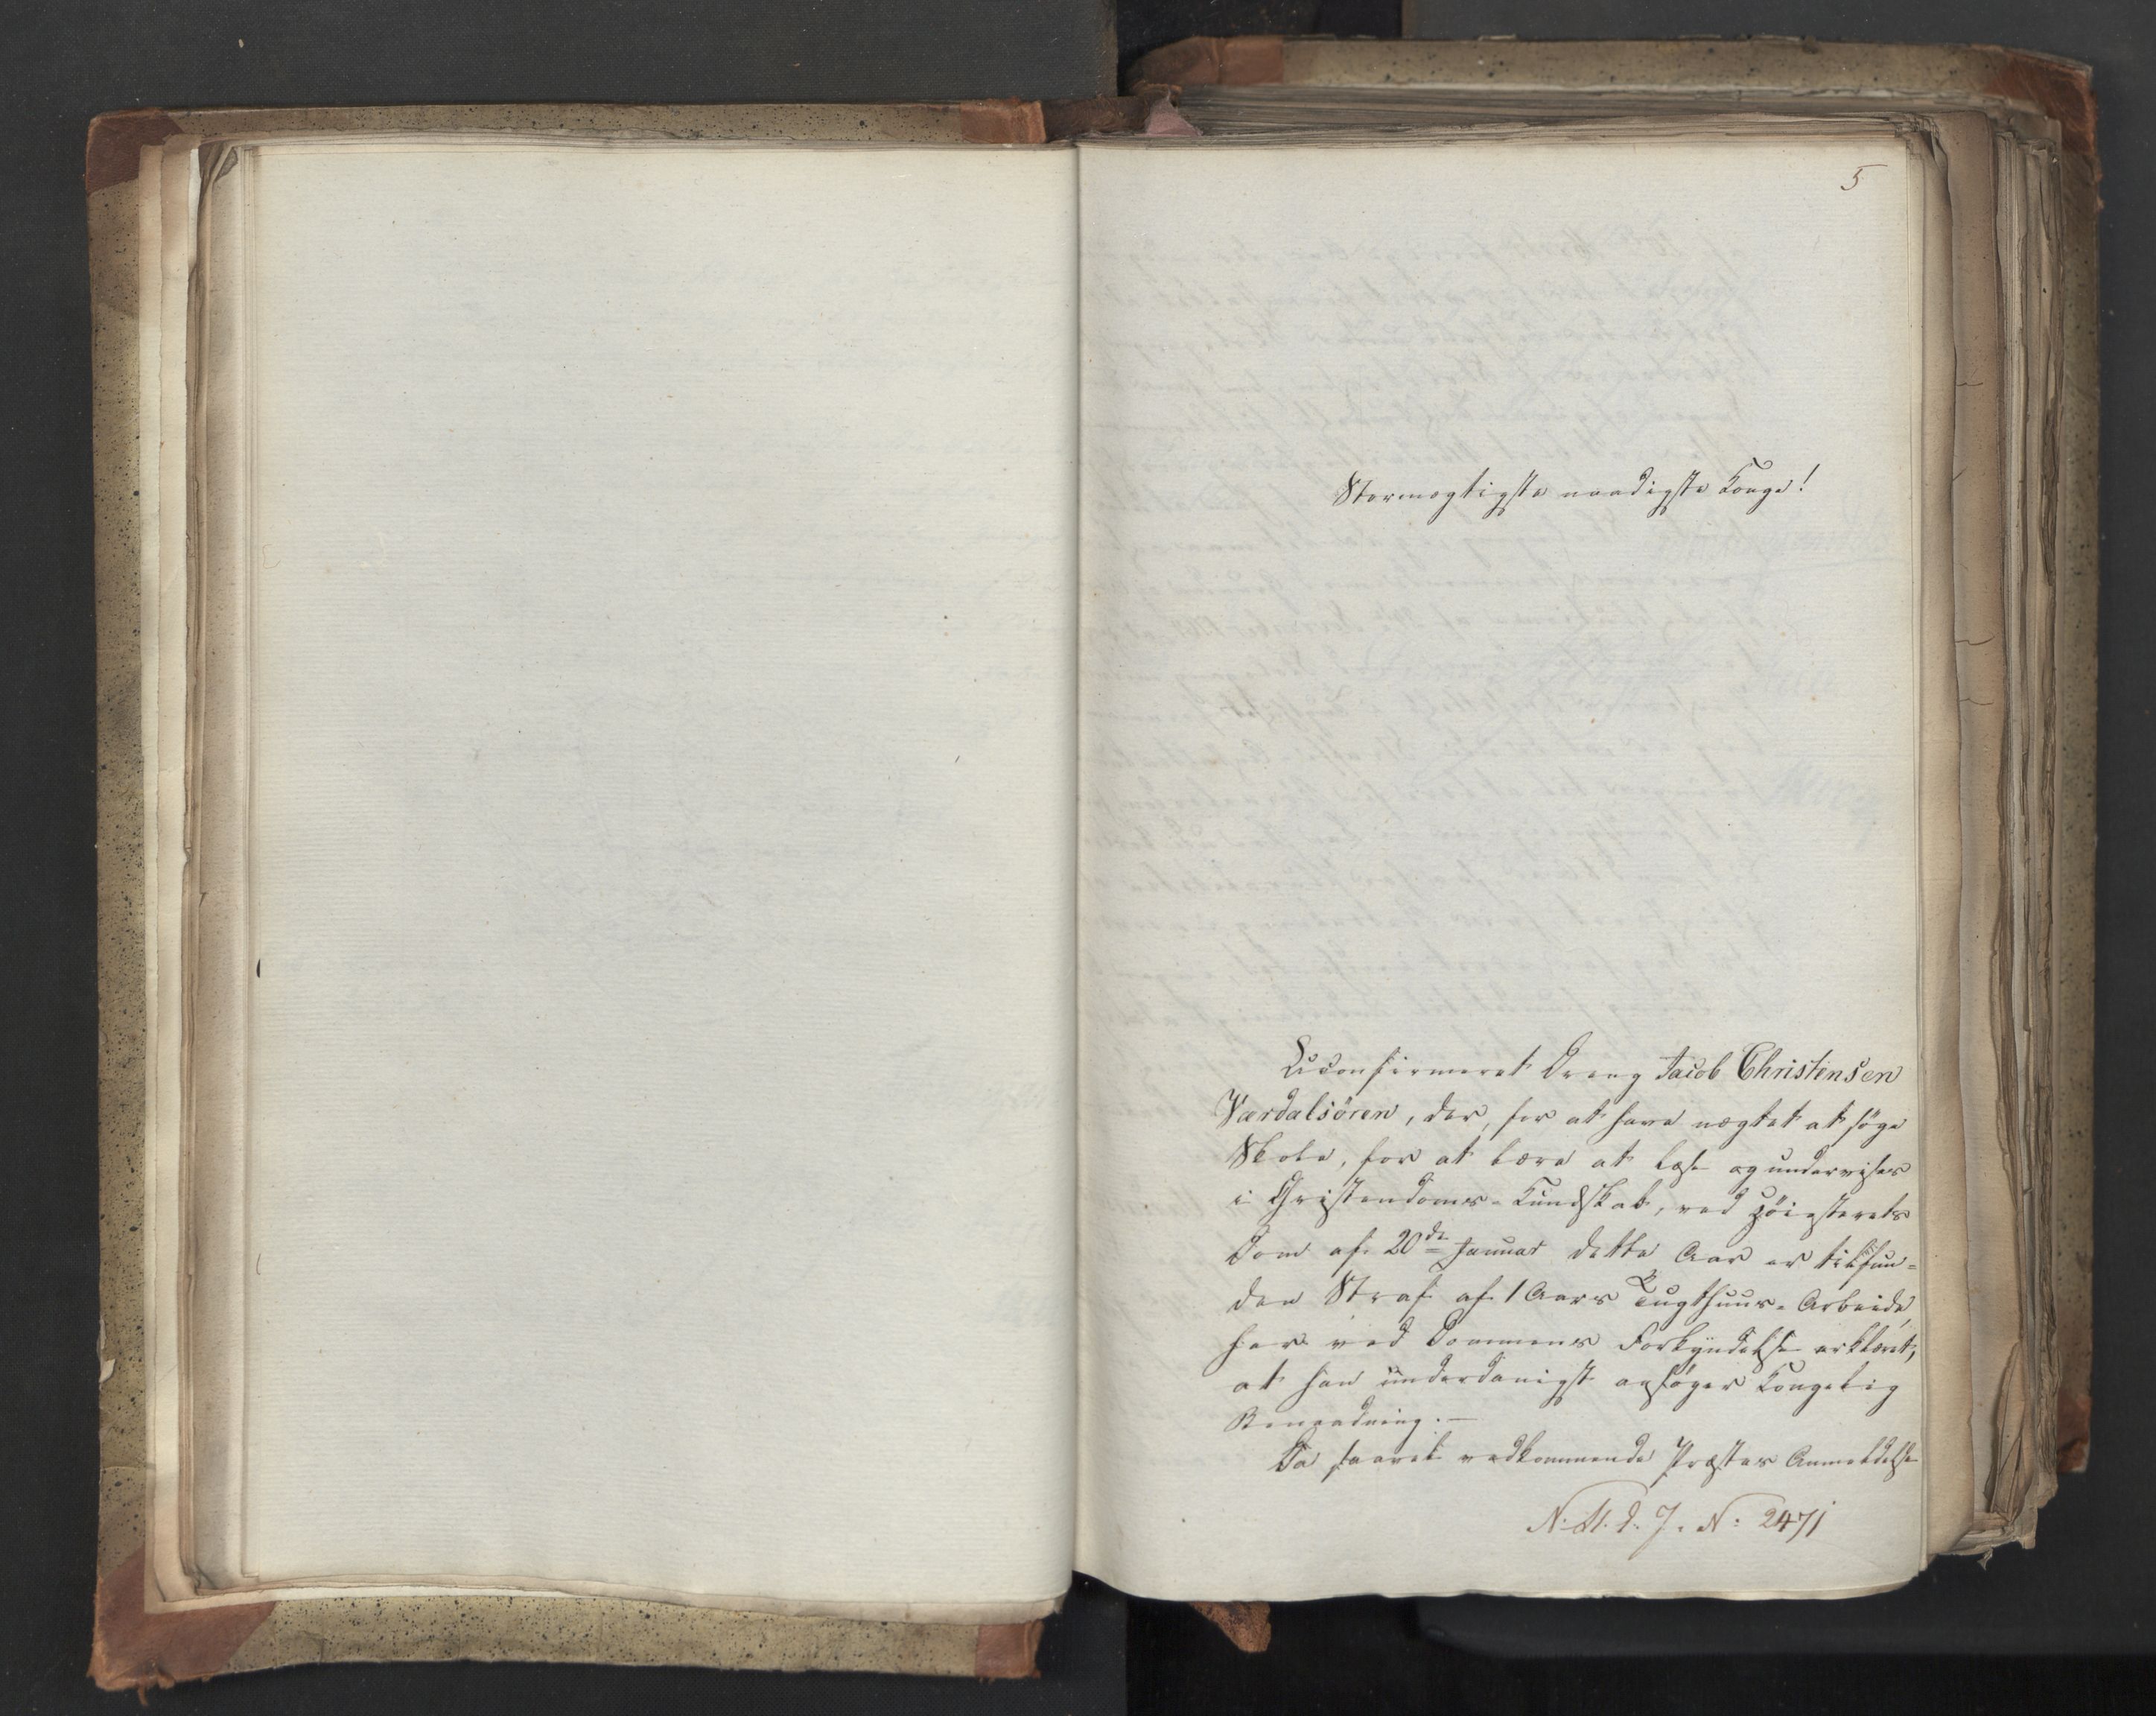 5
Stormægtigste naadigste Konge!
Uconfirmeret Dreng Jacob Christensen
Værdalsören, der, for at have nægtet at söge
Skole, for at lære at læse og undervises
i Christendoms-Kundskab, ved Höiesterets
Dom af 20de Januar dette Aar er tilfun-
den Straf af 1 Aars Tugthuus-Arbeide,
har ved Dommens Forkyndelse erklæret,
at han underdanigst ansöger Kongelig
Benaadning.-
Da saavel vedkommende Præstes Anmeldelse
N: 2471